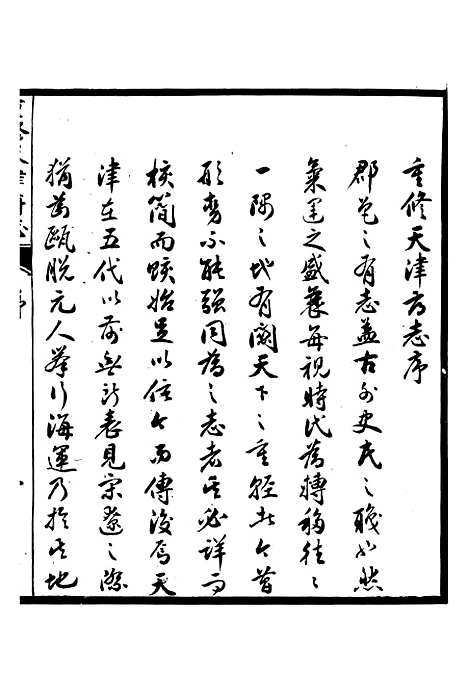 重修天津府志序
郡邑之有志蓋古外史氏之職也然
氣運之盛衰每視時代為轉移往往
一隅之地有關天下之重輕此今昔
形勢不能強同為之志者必詳而
核簡而賅始足以信今而傳後焉天
津在五代以前無所表見宋遼之際
猶為甌脫元人举行海運乃於其地
重修天津府志
序